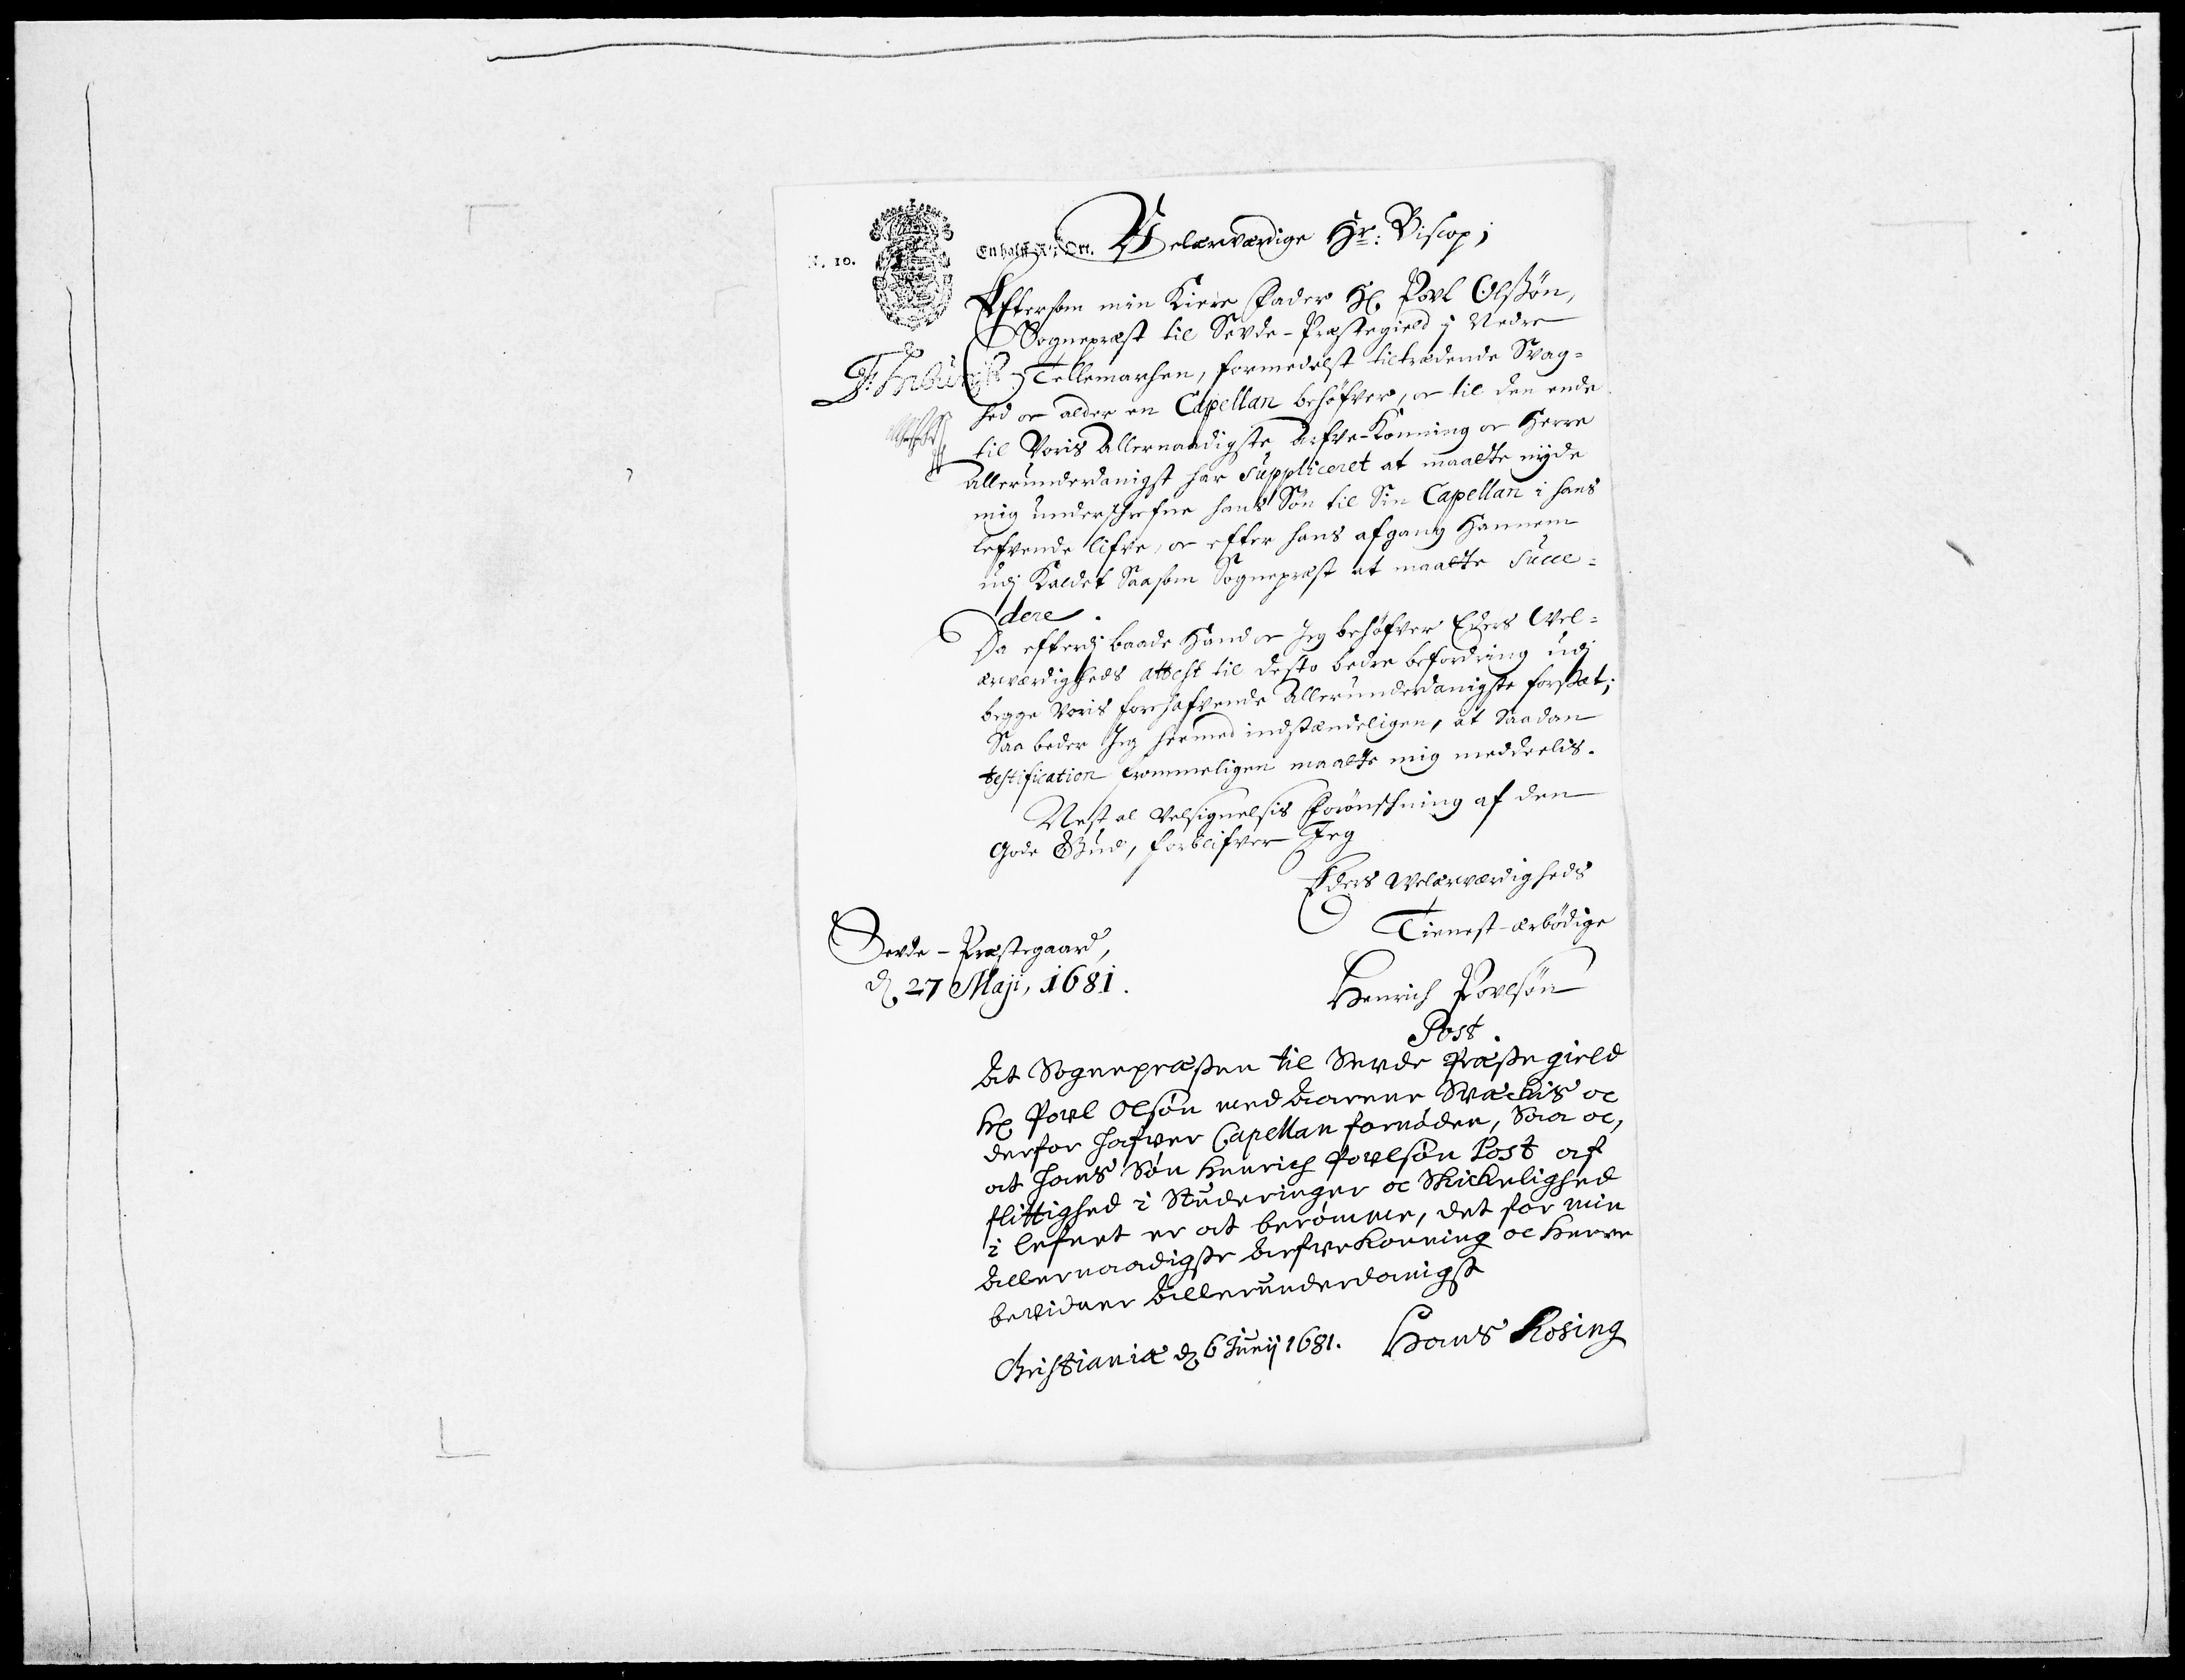 N. 10.
En halff Ort.
Velærværdige Hr: Biscop;
Eftersom min Kiere Fader Hr Povl Olssøn,
Sognepræst til Sevde-Præstegield j Nedre
Tellemarchen, formedelst tiltrædende Svag-
hed oc alder en Capellan behøfver, oc til den ende
til Voris Allernaadigste Arfve-Konning oc Herre
allerunderdanigst har suppliceret at maatte nyde
mig underschrefne hans Søn til Sin Capellan i hans
lefvende lifve, oc efter hans afgang Hannem
udj Kaldet Saasom Sognepræst at maatte Succe-
dere.
Da efterdj baade Hand oc Jeg behøfver Eders Wel-
ærværdigheds attest til desto bedre befordring udj
begge Voris forehafvende allerunderdanigste forsæt;
Saa beder Jeg hermed indstændeligen, at Saadan
testification frommeligen maatte mig meddeelis.
Nest al Velsignelsis Forønschning af den
Gode Gud, forblifver Jeg
Eders Welærværdigheds
Tienest-ærbödige
Sevde-Præstegaard,
d. 27 Maji, 1681.
Henrich Povlsøn
Post.
At Sognepræsten til Sevde Præstegield
Hr Povl Olsøn med Aarene Svæckis oc
derfor hafver Capellan fornöden, Saa oc,
at hans Søn Henrich Povelsön Post af
flittighed i Studeringer oc Skickelighed
i lefnet er at berömme, det for min
Allernaadigste Arfvekonning oc Herre
bevidner Allerunderdanigst
Christianiæ d. 6 Junij 1681. Hans Rosing